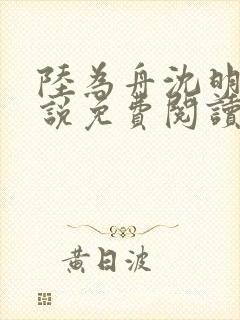 陸為舟沈明
說免費閱讀
黃日波